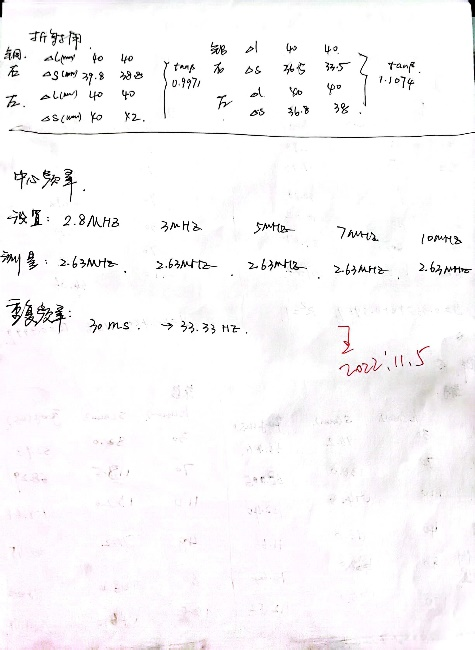 折射角
钢. ΔL(mm) 40 40
右 ΔS(mm) 39.8 38.8
左. ΔL(mm) 40 40
ΔS(mm) 40 42.
tanβ
0.9971
铝 Δl 40 40
右 Δs 36.5 33.5
左 Δl 40 40
Δs 36.8 38
tanβ
1.1074
中心频率.
设置: 2.8MHZ 3MHZ 5MHZ 7MHZ 10MHZ
测量: 2.63MHZ. 2.63MHZ. 2.63MHZ. 2.63MHZ. 2.63MHZ
重复频率: 30ms. → 33.33HZ.
2022.11.5